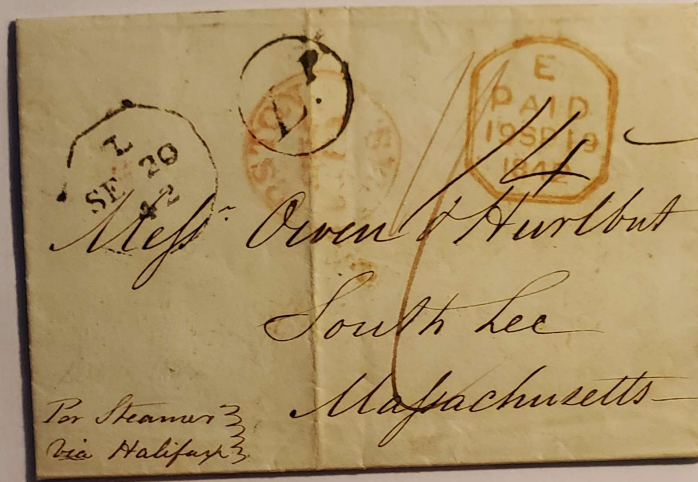 L.P.
E
PAID
19SP19
1842
L
SE 20
42
Messr. Owen & Hurlbut
South Lee
Massachusetts
Per Steamer
via Halifax